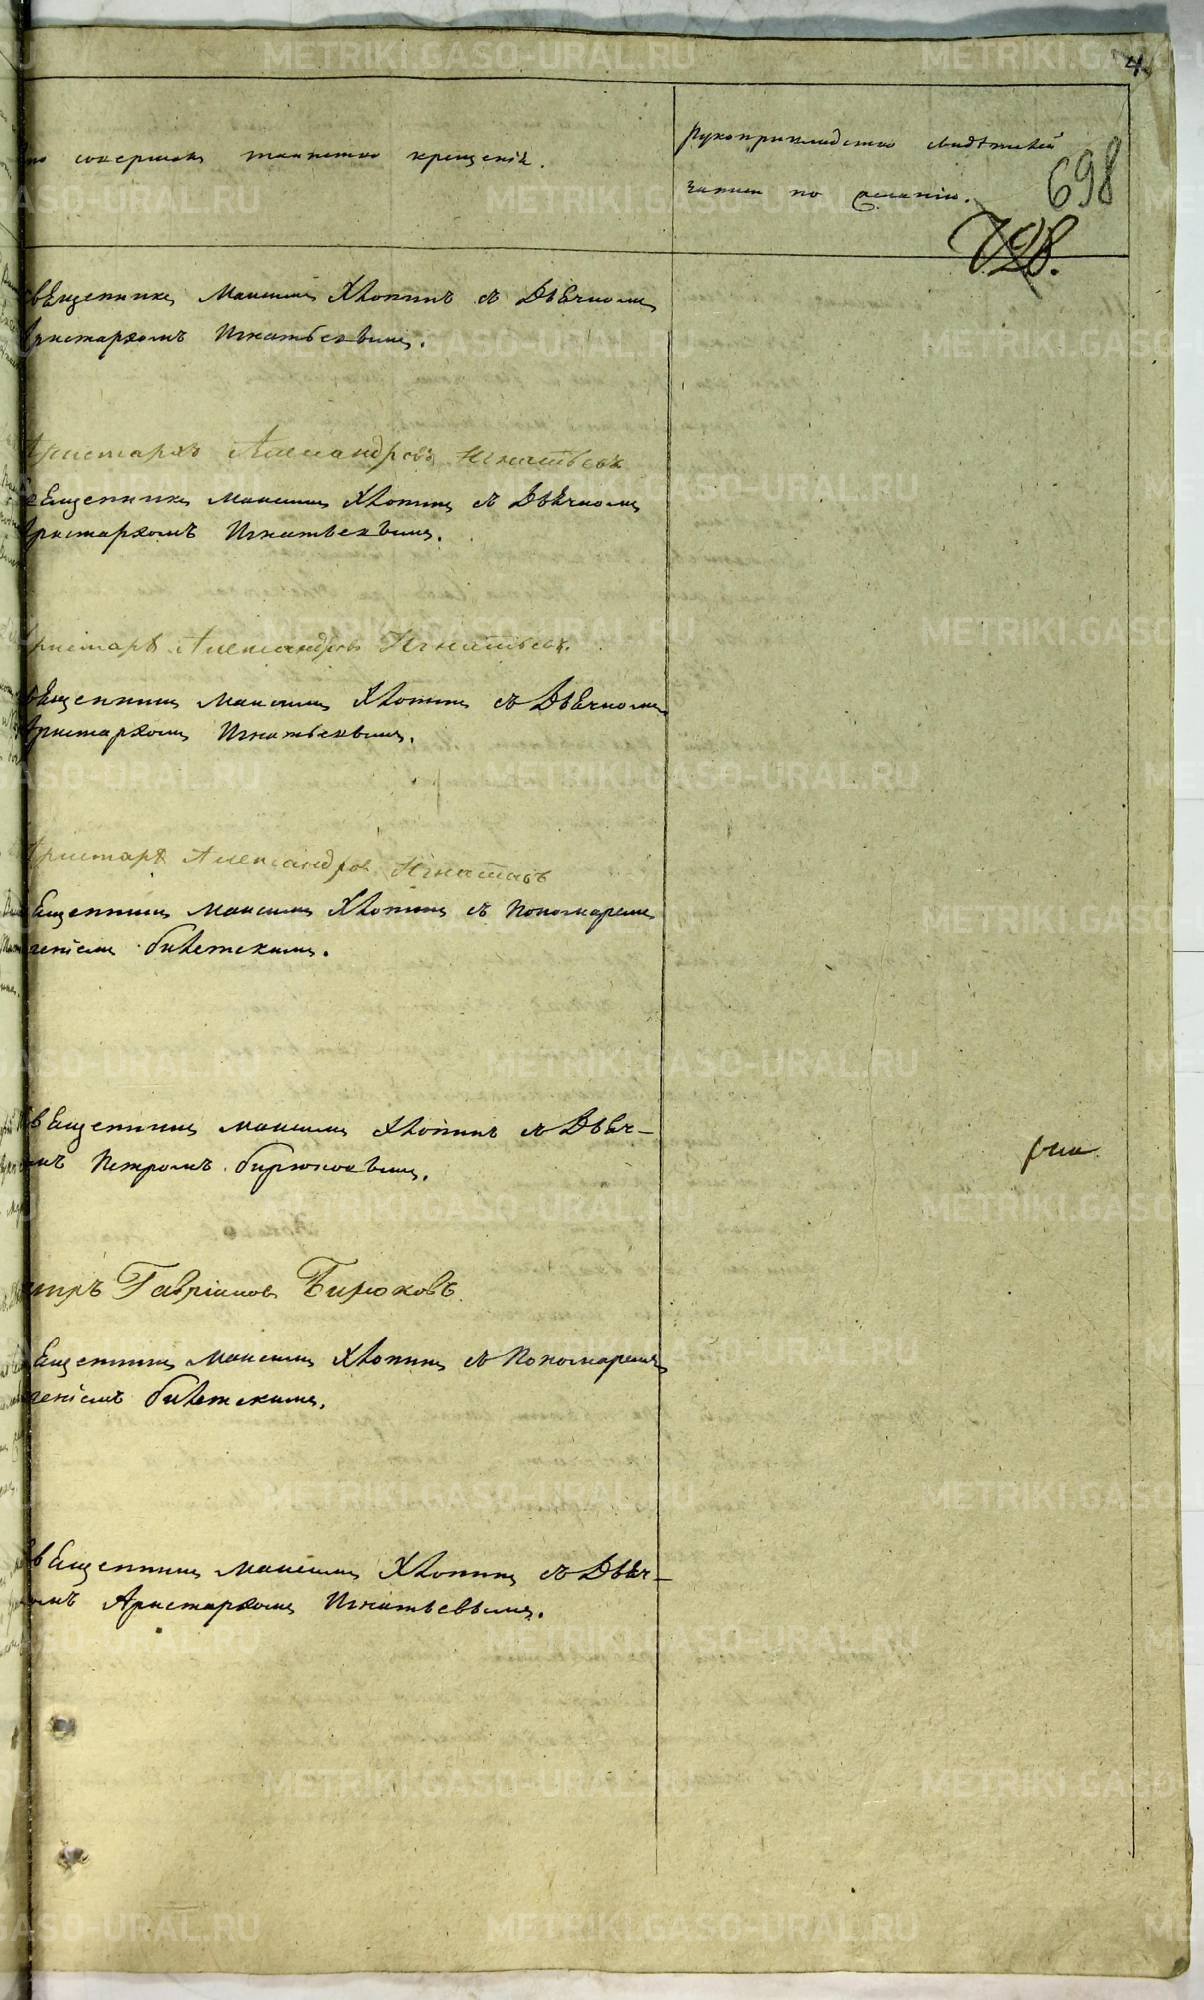 4
то совершалъ таинство крещенія.
рукоприкладство свидѣтелей
записи по желанію.
698
728.
вященникъ Максимъ Хлопинъ съ Дьячкомъ
Аристархомъ Игнатьевымъ.
Аристархъ Александровъ Игнатьевъ
вященникъ Максимъ Хлопинъ съ Дьячкомъ
Аристархомъ Игнатьевымъ.
Аристархъ Александровъ Игнатьевъ.
вященникъ Максимъ Хлопинъ съ Дьячкомъ
Аристархомъ Игнатьевымъ.
Аристархъ Александровъ Игнатьевъ
ященникъ Максимъ Хлопинъ съ Пономаремъ
геніемъ Билетскимъ.
вященникъ Максимъ Хлопинъ съ Дьяч-
омъ Петромъ Бирюковымъ.
етръ Гавриловъ Бирюковъ.
ященникъ Максимъ Хлопинъ съ Пономаремъ
геніемъ Билетскимъ.
вященникъ Максимъ Хлопинъ съ Дьяч-
омъ Аристархомъ Игнатьевымъ.
METRIKI.GASO-URAL.RU